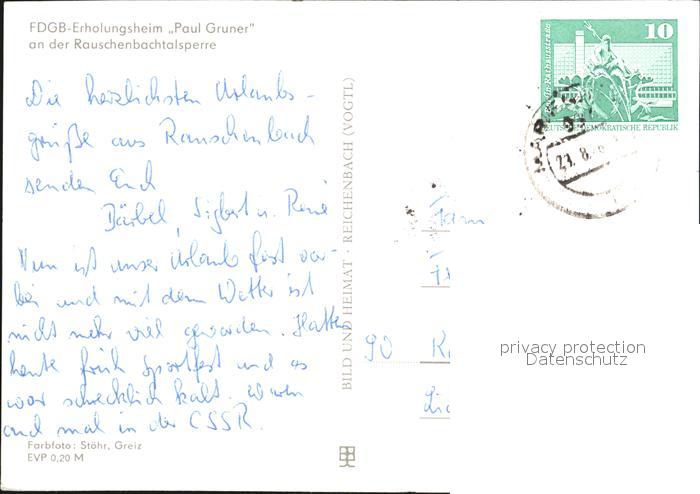 FDGB-Erholungsheim „Paul Gruner"
an der Rauschenbachtalsperre
Die herzlichsten Urlaubs-
grüße aus Rauschenbach
senden Euch
Bärbel, Sigbert u. René
Nun ist unser Urlaub fast vor-
bei und mit dem Wetter ist
nicht mehr viel geworden. Hatten
heute früh Sportfest und es
war schrecklich kalt. Waren
auch mal in der CSSR.
Farbfoto: Stöhr, Greiz
EVP 0,20 M
BILD UND HEIMAT · REICHENBACH (VOGTL)
10
DEUTSCHE DEMOKRATISCHE REPUBLIK
23. 8.
Fam
90
privacy protection
Datenschutz